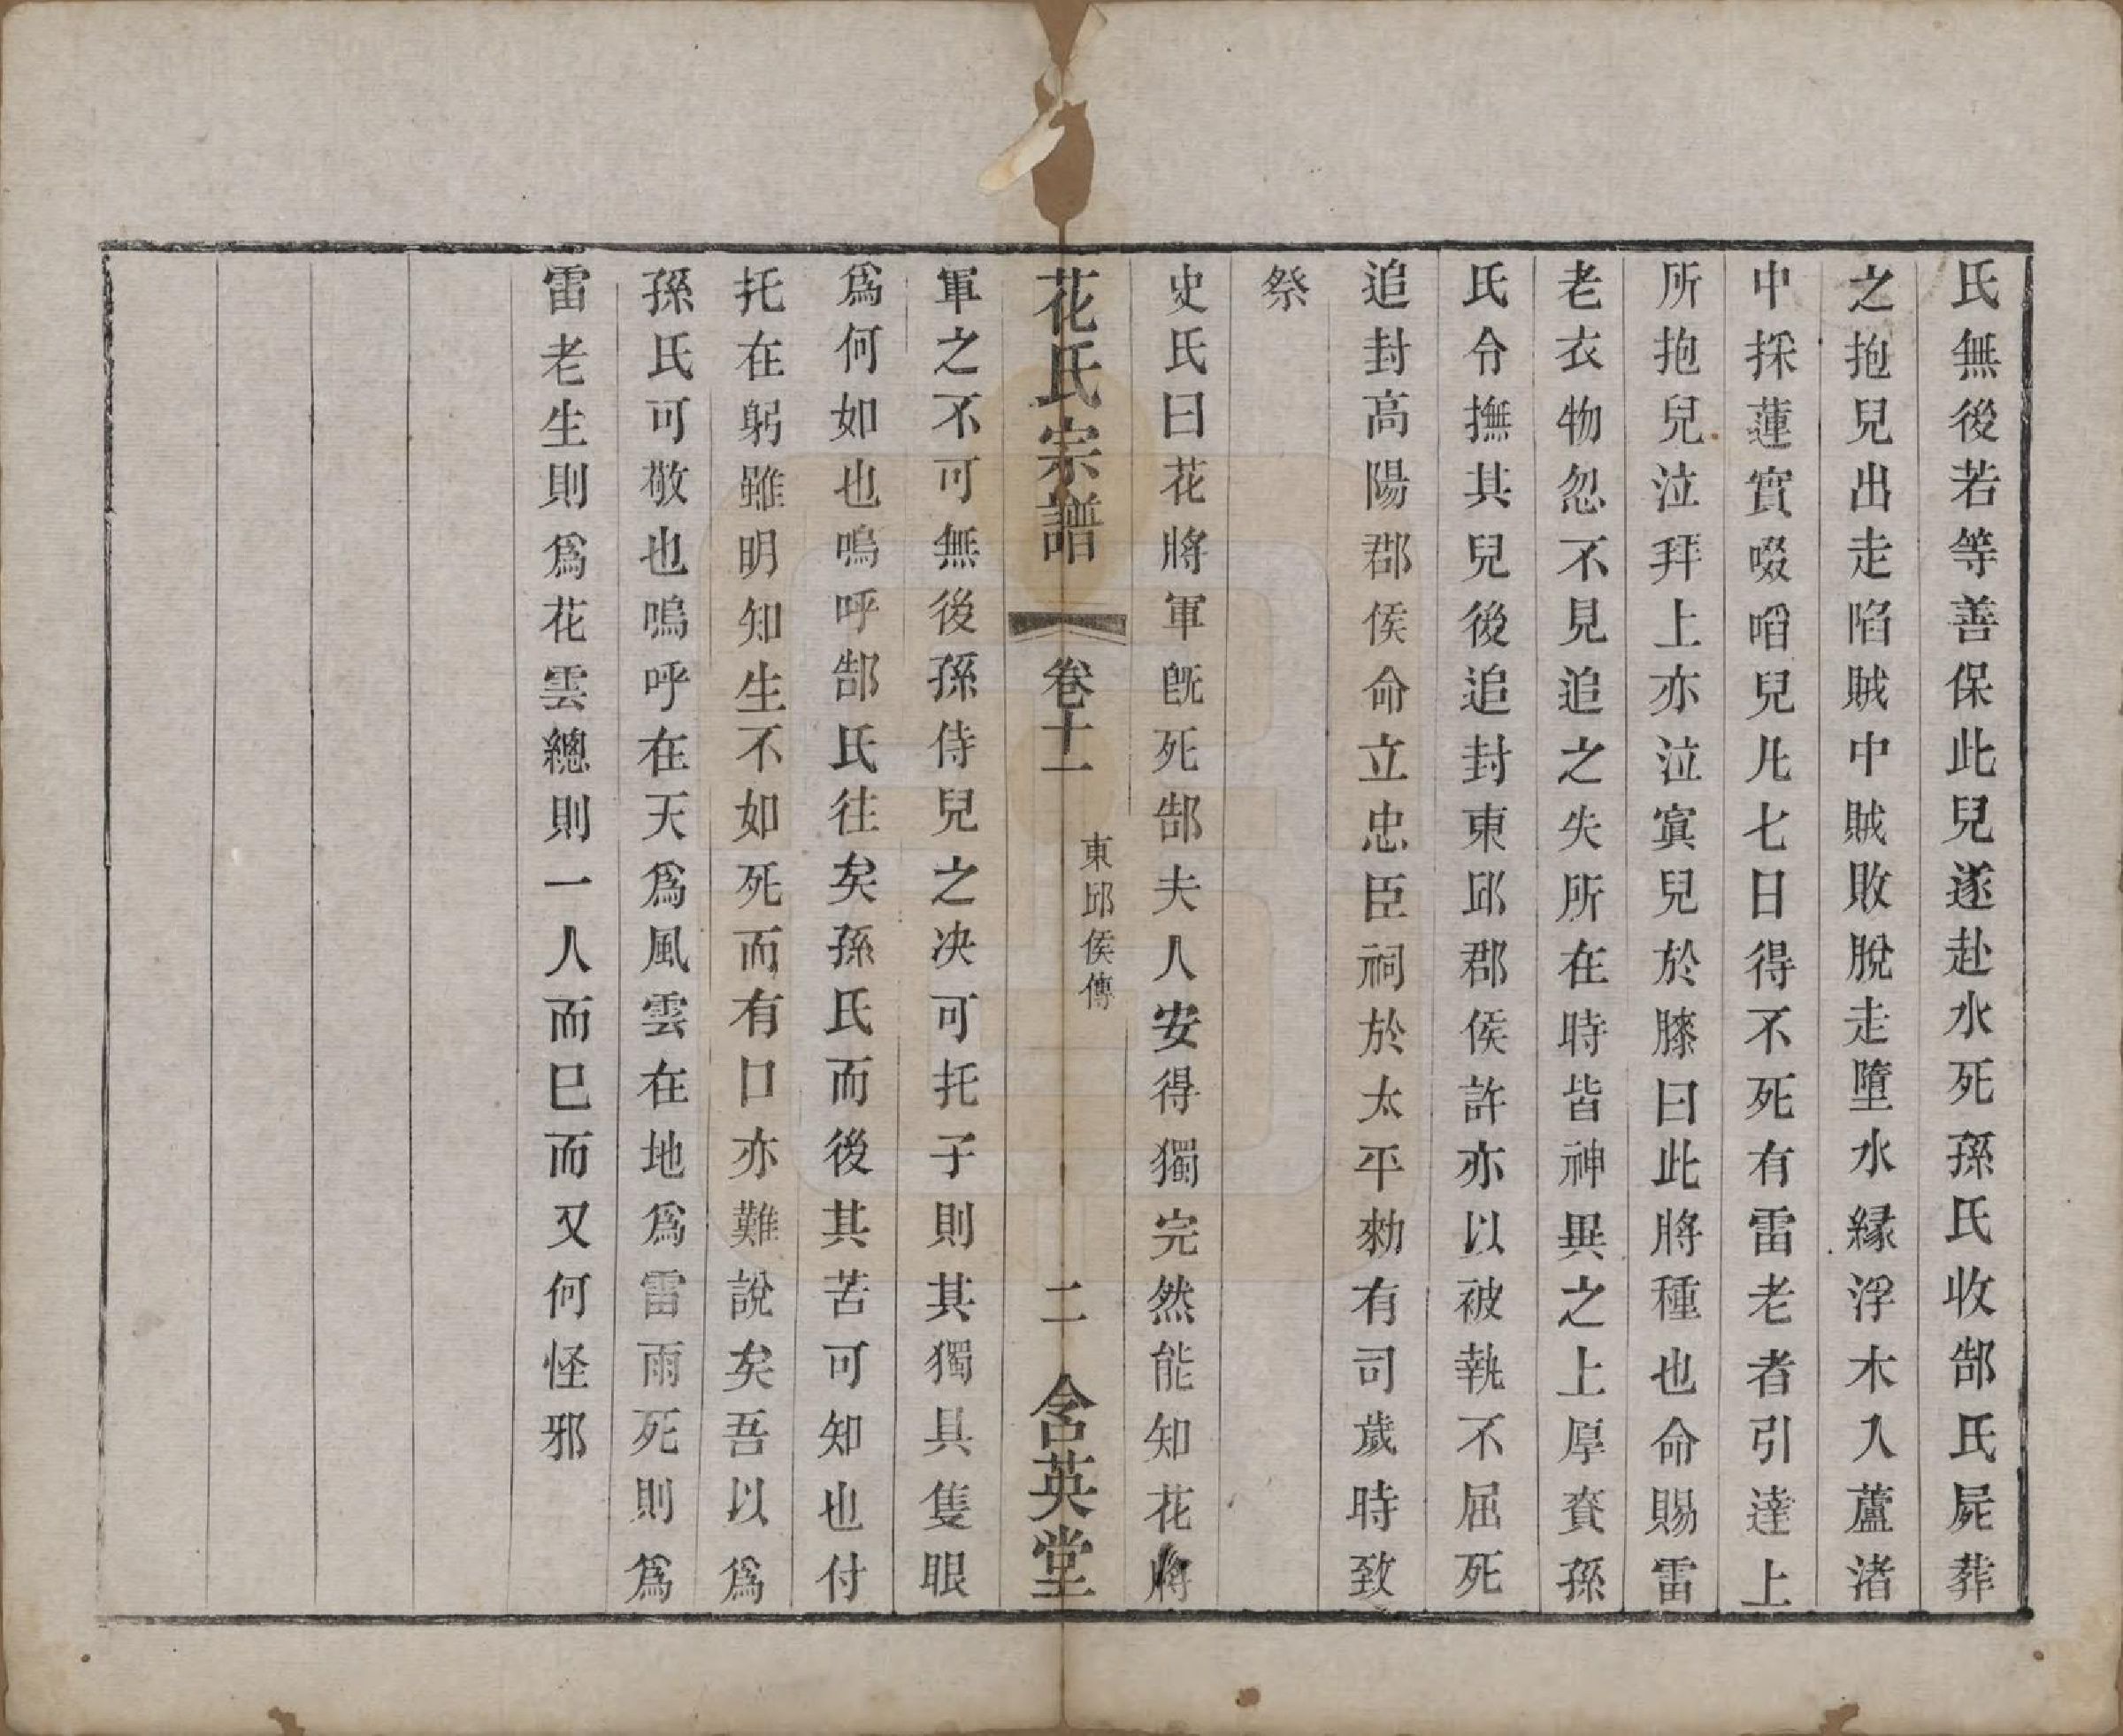 氏無後若等善保此兒遂赴水死孫氏收郜氏屍葬
之抱兒出走陷賊中賊敗脫走墮水緣浮木入蘆渚
中採蓮實啜㗖兒凡七日得不死有雷老者引達上
所抱兒泣拜上亦泣寘兒於膝曰此將種也命賜雷
老衣物忽不見追之失所在時皆神異之上厚賚孫
氏令撫其兒後追封東邱郡侯許亦以被執不屈死
追封高陽郡侯命立忠臣祠於太平勑有司歲時致
祭
史氏曰花將軍旣死郜夫人安得獨完然能知花將
花氏宗譜
卷十一
東邱侯傳
二
含英堂
軍之不可無後孫侍兒之决可托子則其獨具隻眼
爲何如也嗚呼郜氏往矣孫氏而後其苦可知也付
托在躬雖明知生不如死而有口亦難說矣吾以爲
孫氏可敬也嗚呼在天爲風雲在地爲雷雨死則爲
雷老生則爲花雲總則一人而巳而又何怪邪